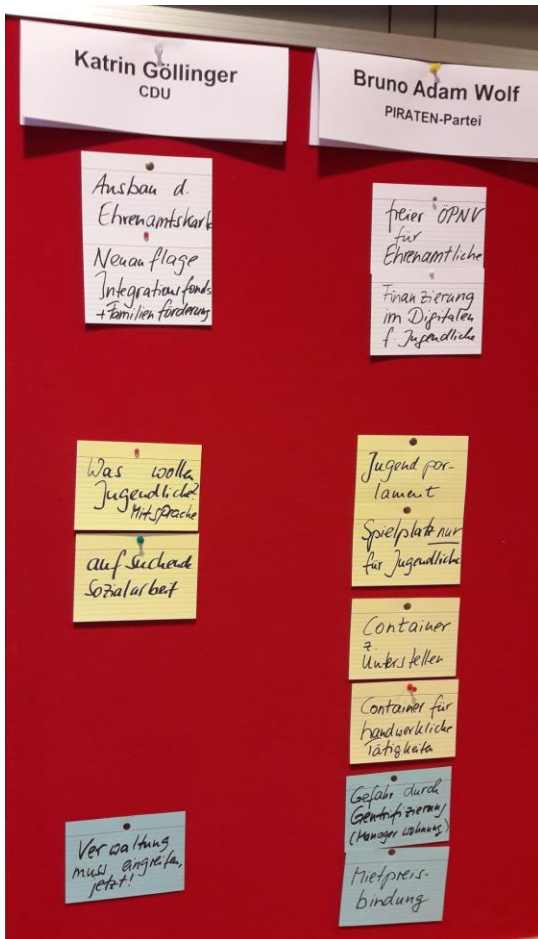 Katrin Göllinger
CDU
Ausbau d.
Ehrenamtskarte
Neuauflage
Integrationsfonds
+Familienförderung
Was wollen
Jugendliche?
Mitsprache
aufsuchende
Sozialarbeit
Verwaltung
muss eingreifen,
jetzt!
Bruno Adam Wolf
PIRATEN-Partei
freier ÖPNV
für
Ehrenamtliche
Finanzierung
im Digitalen
f. Jugendliche
Jugendpar-
lament
Spielplatz nur
für Jugendliche
Container
z.
Unterstellen
Container für
handwerkliche
Tätigkeiten
Gefahr durch
Gentrifizierung
(Managerwohnung)
Mietpreis-
bindung